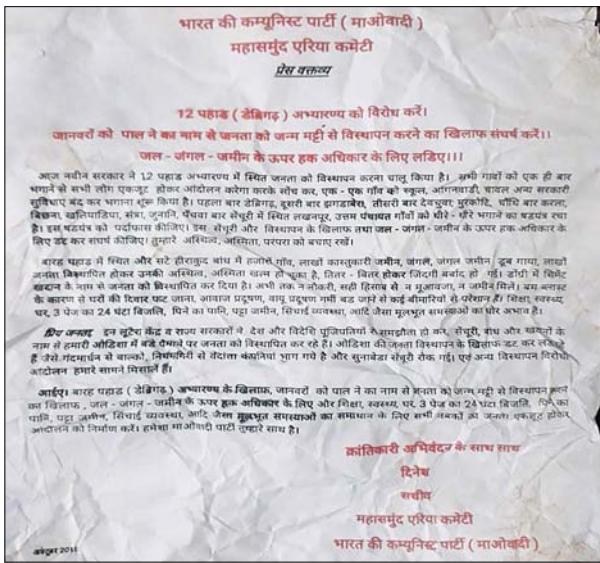 भारत की कम्युनिस्ट पार्टी ( माओवादी )
महासमुंद एरिया कमेटी
प्रेस वक्तव्य
12 पहाड ( डेब्रिगढ़ ) अभ्यारण्य को विरोध करें।
जानवरों को पाल ने का नाम से जनता को जन्म मट्टी से विस्थापन करने का खिलाफ संघर्ष करें।।
जल - जंगल - जमीन के ऊपर हक अधिकार के लिए लडिए।।।
आज नवीन सरकार ने 12 पहाड अभ्यारण्य में स्थित जनता को विस्थापन करना चालू किया है। सभी गांवों को एक ही बार
भगाने से सभी लोग एकजूट होकर आंदोलन करेगा करके सोंच कर, एक - एक गाँव को स्कूल, आंगनवाडी, चावल अन्य सरकारी
सुविधाए बंद कर भगाना शूरू किया है। पहला बार डेब्रिगढ़, दूसरी बार झगडाबेरा, तीसरी बार देवधुवा, मुरकोटि, चौथि बार करला,
बिछना, खलियाडिपा, संत्रा, जुनानि, पँचवा बार सेंचूरी में स्थित लखनपूर, उत्तम पंचायत गाँवों को धीरे - धीरे भगाने का षडयंत्र रचा
है। इस षडयंत्र को पर्दाफास कीजिए। इस सेंचूरी और विस्थापन के खिलाफ तथा जल - जंगल - जमीन के ऊपर हक अधिकार के
लिए डट कर संघर्ष कीजिए। तुम्हारे अस्थित्व, अस्मिता, परंपरा को बचाए रखें।
बारह पहाड में स्थित और सटे हीराकुद बांध में हजारों गाँव, लाखों काश्तकारी जमीन, जंगल, जंगल जमीन डूब गाया, लाखों
जनता विस्थापित होकर उनकी अस्थित्व, अस्मिता खत्म हो चूका है, तितर - बितर होकर जिंदगी बर्बाद हो गई। डोंग्री में सिमेंट
खदान के नाम से जनता को विस्थापित कर दिया है। अभी तक न नौकरी, सही हिसाब से न मूआवजा, न जमीन मिले। बम ब्लास्ट
के कारण से घरों की दिवार फट जाना, आवाज प्रदूषण, वायू प्रदूषण गर्मी बड जाने से कई बीमारियों से परेशान हैं। शिक्षा, स्वस्थ्य,
घर, 3 पेज का 24 घंटा बिजलि, पिने का पानि, पट्टा जमीन, सिंचाई व्यवस्था, आदि जैसा मूलभूत समस्याओं का घोर अभाव है।
प्रिय जनता, इन लूटेरा केंद्र व राज्य सरकारों ने देश और विदेशि पूंजिपतियों से समझौता हो कर, सेंचूरी, बांध और खदानों के
नाम से हमारी ओडिशा में बडे पैमाने पर जनता को विस्थापित कर रहे है। ओडिशा की जनता विस्थापन के खिलाफ डट कर लड
हैं जैसे गंदमार्धन से बाल्को, नियमगिरी से वेदांता कंपनियां भाग गये है और सुनाबेडा सेंचूरी रोक गई। एवं अन्य विस्थापन विरोधी
आंदोलन हमारे सामने मिसाल हैं।
आईए। बारह पहाड ( डेब्रिगढ़ ) अभ्यारण्य के खिलाफ, जानवरों को पाल ने का नाम से जनता को जन्म मट्टी से विस्थापन करने
का खिलाफ, जल - जंगल - जमीन के ऊपर हक अधिकार के लिए और शिक्षा, स्वस्थ्य, घर, 3 पेज का 24 घंटा बिजलि, पिने का
पानि, पट्टा जमीन, सिंचाई व्यवस्था, आदि जैसा मूलभूत समस्याओं का समाधान के लिए सभी तबकों की जनता एकजूट होकर
आंदोलन को निर्माण करें। हमेशा माओवादी पार्टी तुम्हारे साथ है।
क्रांतिकारी अभिवंदन के साथ साथ
दिनेष
सचीव
महासमुंद एरिया कमेटी
भारत की कम्युनिस्ट पार्टी ( माओवादी )
अक्टूबर